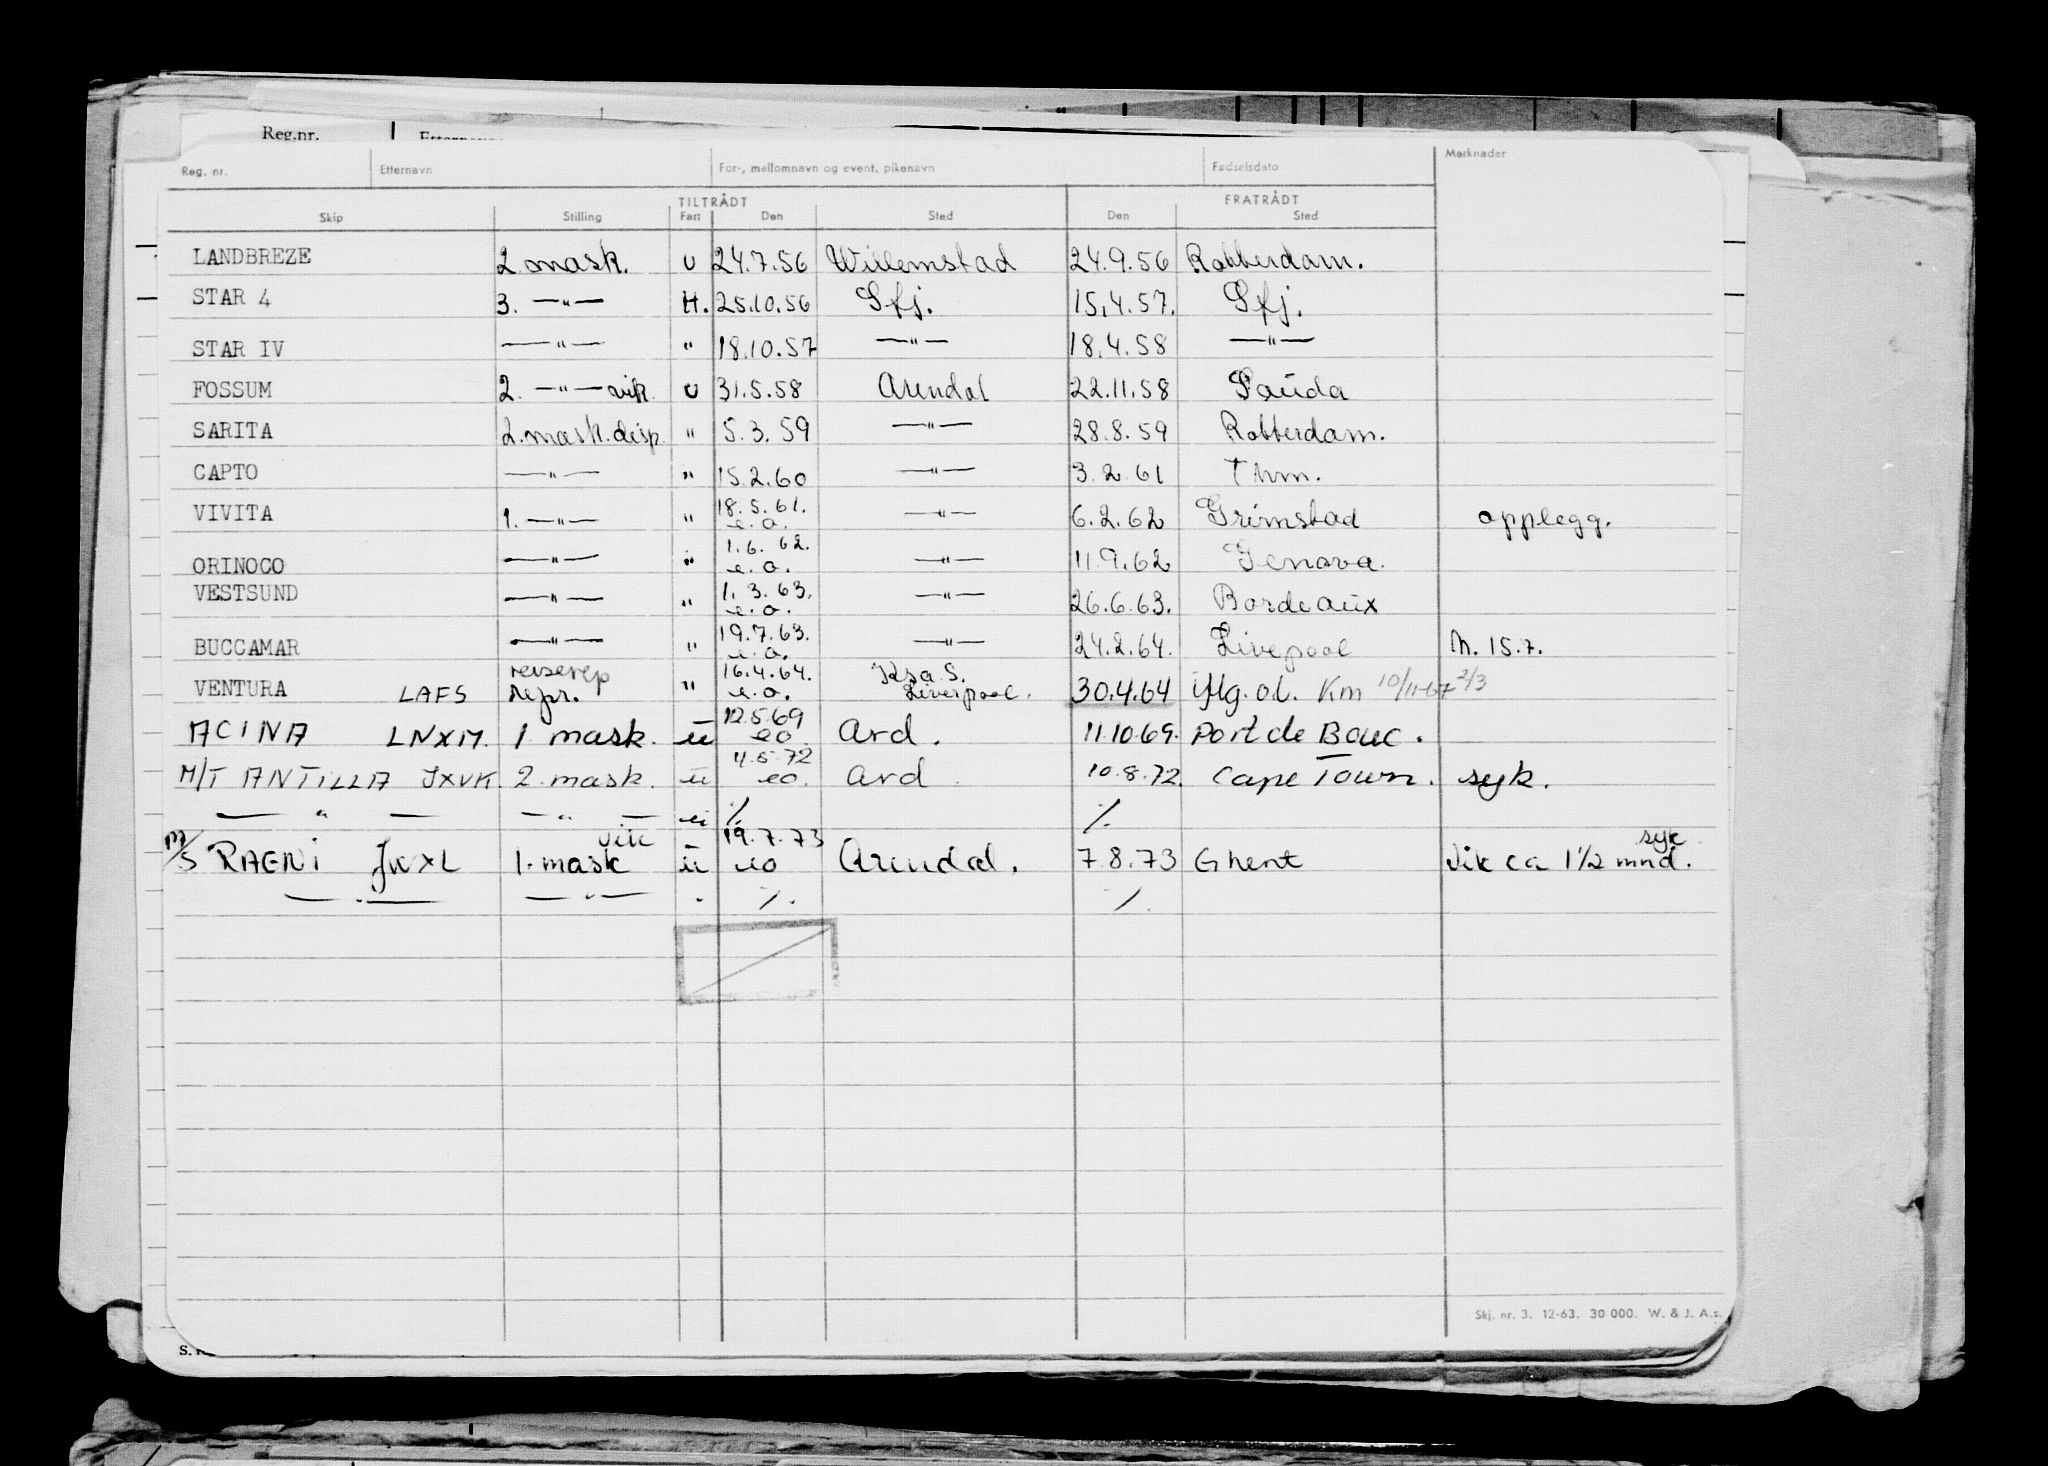 Reg.nr. Etternavn
Reg. nr. Etternavn For-, mellomnavn og event. pikenavn Fødselsdato Merknader
TILTRÅDT FRATRÅDT
Skip Stilling Fart Den Sted Den Sted
LANDBREZE 2. mask. U 24.7.56 Willemstad 24.9.56 Rotterdam.
STAR 4 3. —"— H. 25.10.56 Sfj. 15.4.57. Sfj.
STAR IV —"— " 18.10.57 —"— 18.4.58 —"—
FOSSUM 2. —"— vik. U 31.5.58 Arendal 22.11.58 Sauda
SARITA 2. mask. disp. " 5.3.59 —"— 28.8.59 Rotterdam.
CAPTO —"— " 15.2.60 —"— 3.2.61 Thm.
VIVITA 1. —"— " 18.5.61. e.o. —"— 6.2.62 Grimstad opplegg.
ORINOCO —"— " 1.6.62. e.o. —"— 11.9.62 Genova.
VESTSUND —"— " 1.3.63. e.o. —"— 26.6.63. Bordeaux
BUCCAMAR —"— " 19.7.63. e.o. —"— 24.2.64. Livepool M. 15.7.
VENTURA LAFS reiserep repr. " 16.4.64. e.o. Krsa.S. Liverpool. 30.4.64 iflg. o.l. Km 10/11-67 2/3
ACINA LNXM. 1. mask. u 12.5.69 eo Ard. 11.10.69. Port de Bouc.
M/T ANTILLA JXVK. 2. mask. u 4.5.72 eo. Ard 10.8.72. Cape Town. syk.
— " — — " — u ./. ./.
M/S RAENI JWXL 1. mask vik u 19.7.73 eo Arendal. 7.8.73 Ghent Vik ca 1½ mnd. syk.
— " — — " — " ./. ./.
Skj. nr. 3. 12-63. 30 000. W. & J. A.s.